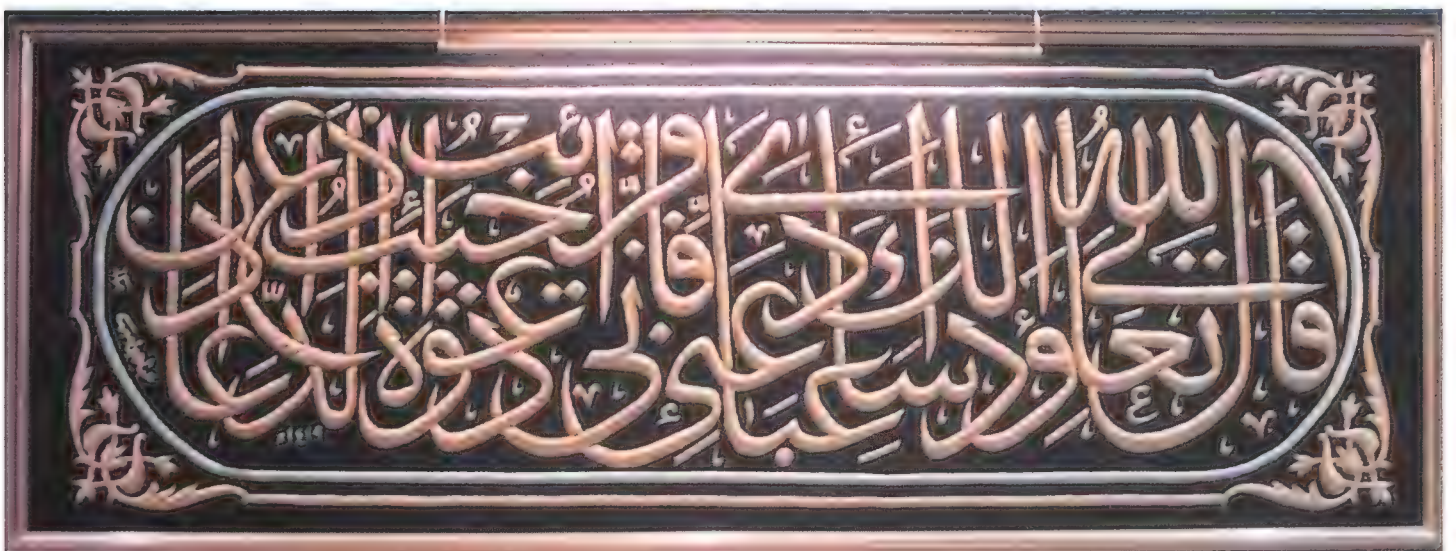 قَالَ اللهُ تَعَالَى وَإِذَا سَأَلَكَ عِبَادِي عَنِّي فَإِنِّي قَرِيبٌ أُجِيبُ دَعْوَةَ الدَّاعِ إِذَا دَعَانِ